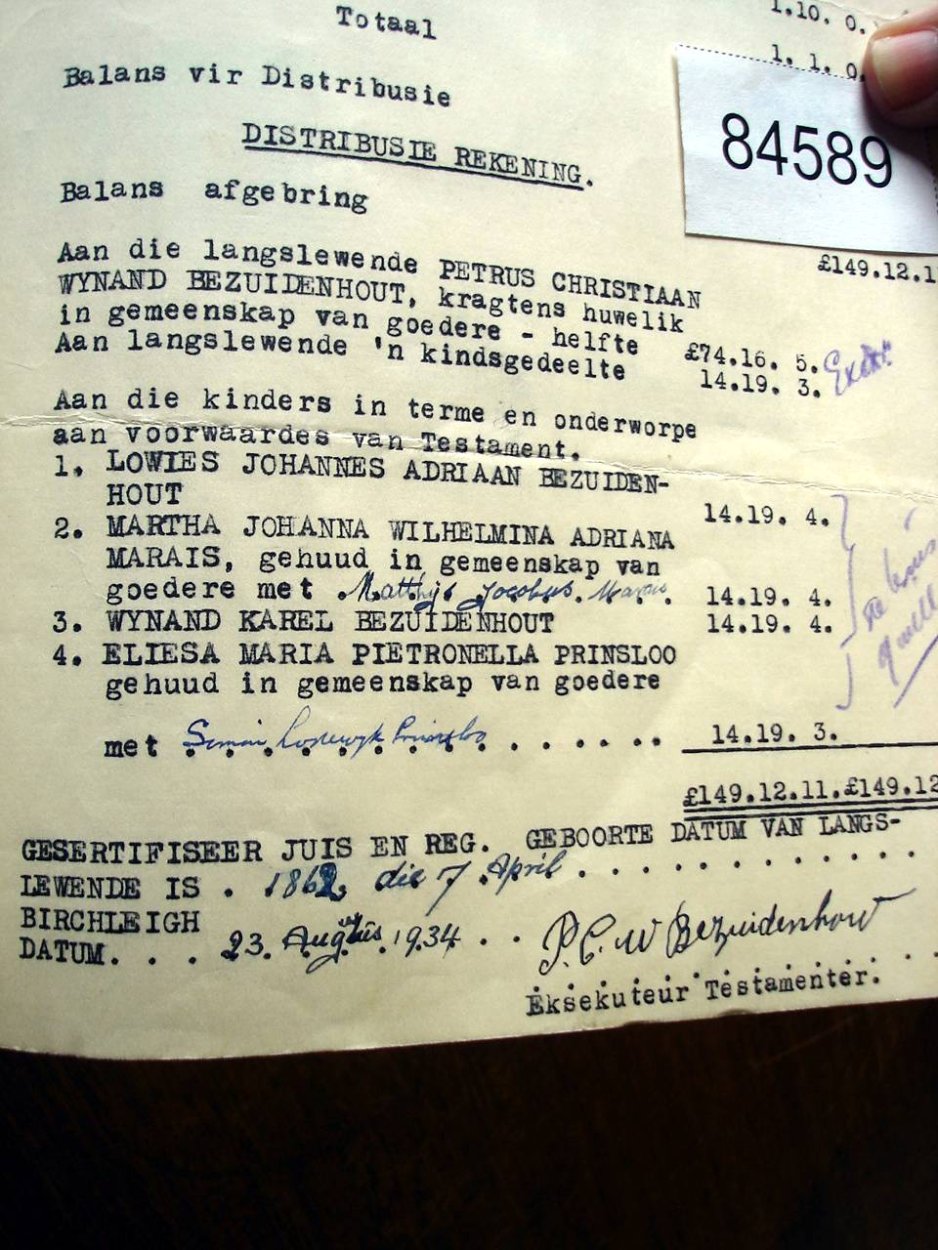 Totaal 1.10. 0.
1. 1. 0.
Balans vir Distribusie
84589
DISTRIBUSIE REKENING.
Balans afgebring
£149.12.1
Aan die langslewende PETRUS CHRISTIAAN
WYNAND BEZUIDENHOUT, kragtens huwelik
in gemeenskap van goedere - helfte £74.16. 5.
Aan langslewende 'n kindsgedeelte 14.19. 3.
Aan die kinders in terme en onderworpe
aan voorwaardes van Testament.
1. LOWIES JOHANNES ADRIAAN BEZUIDEN-
HOUT 14.19. 4.
2. MARTHA JOHANNA WILHELMINA ADRIANA
MARAIS, gehuud in gemeenskap van
goedere met Matthijs Jacobus Marais 14.19. 4.
3. WYNAND KAREL BEZUIDENHOUT 14.19. 4.
4. ELIESA MARIA PIETRONELLA PRINSLOO
gehuud in gemeenskap van goedere
met Simon Lodewyk Prinsloo . . . . . . . 14.19. 3.
£149.12.11.£149.12
GESERTIFISEER JUIS EN REG. GEBOORTE DATUM VAN LANGS-
LEWENDE IS . 1862 die 7 April . . . . . . . . . . . .
BIRCHLEIGH
DATUM. . . 23. Augtus 1934 . . P. C. W Bezuidenhout
Eksekuteur Testamentêr.